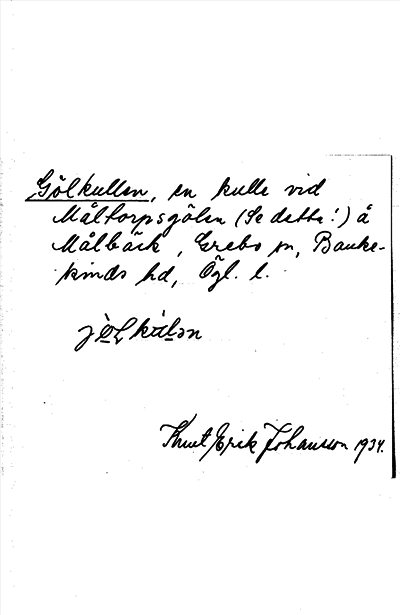 Gölkullen, en kulle vid
Måltorpsgölen (Se detta!) å
Målbäck, Grebo sn, Banke-
kinds hd, Ögl. l.
Knut Erik Johansson 1934.